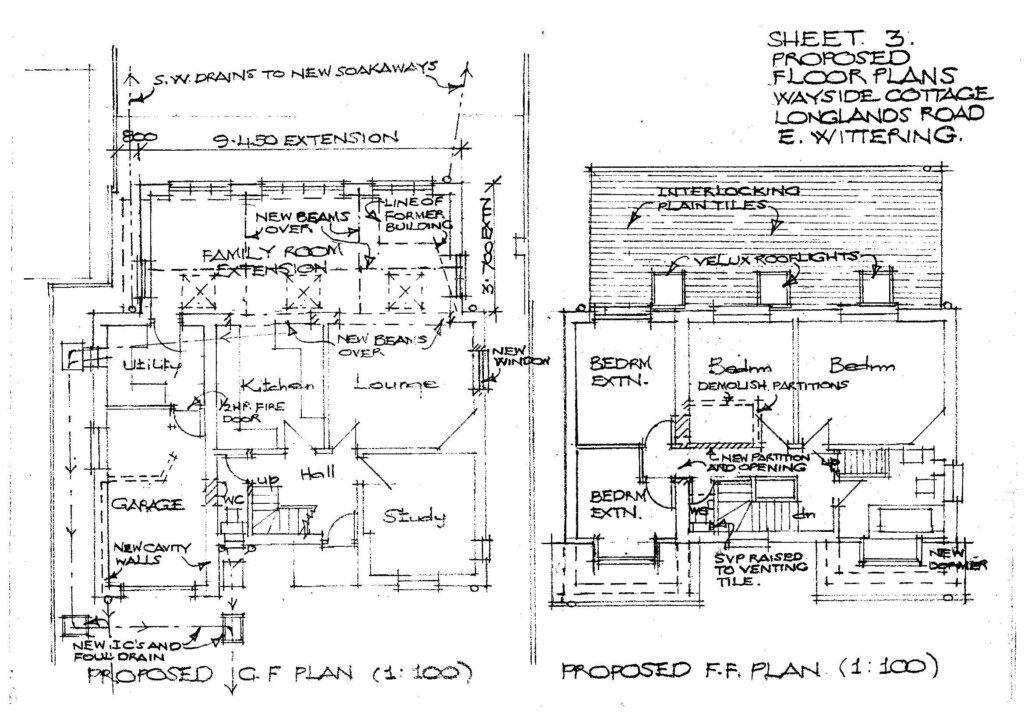 SHEET. 3.
PROPOSED
FLOOR PLANS
WAYSIDE COTTAGE
LONGLANDS ROAD
E. WITTERING.
S.W. DRAINS TO NEW SOAKAWAYS
800
9.450 EXTENSION
NEW BEAMS
OVER
LINE OF
FORMER
BUILDING
3.700 EXTN
FAMILY ROOM
EXTENSION
NEW BEAMS
OVER
NEW
WINDOW
Utility
Kitchen
Lounge
½HR. FIRE
DOOR
Hall
up
WC
GARAGE
Study
NEW CAVITY
WALLS
NEW I.C'S AND
FOUL DRAIN
PROPOSED G.F PLAN (1:100)
INTERLOCKING
PLAIN TILES
VELUX ROOFLIGHTS
BEDRM
EXTN.
Bedrm
Bedrm
DEMOLISH PARTITIONS
NEW PARTITION
AND OPENING
up
BEDRM
EXTN.
WC
dn
SVP RAISED
TO VENTING
TILE.
NEW
DORMER
PROPOSED F.F. PLAN (1:100)